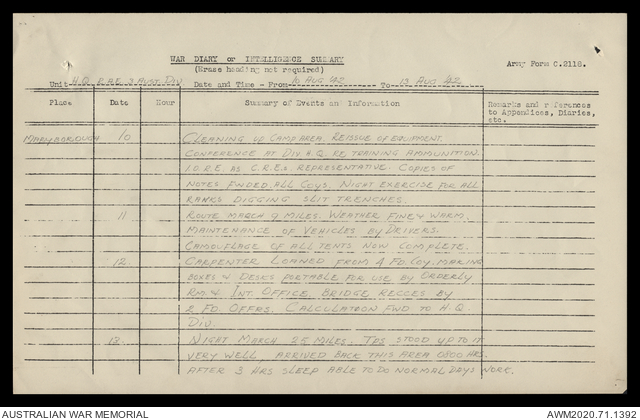 WAR DIARY or INTELLIGENCE SUMMARY
(Erase heading not required)
Army Form C.2118.
Unit H.Q. R.A.E. 3 AUST. DIV Date and Time - From 10 AUG '42 To 13 AUG '42
Place Date Hour Summary of Events and Information Remarks and references to Appendices, Diaries, etc.
MARYBOROUGH 10 CLEANING UP CAMP AREA. REISSUE OF EQUIPMENT.
CONFERENCE AT DIV. H.Q. RE TRAINING AMMUNITION.
I.O.R.E. AS C.R.E.s REPRESENTATIVE. COPIES OF
NOTES FWDED. ALL COYS. NIGHT EXERCISE FOR ALL
RANKS DIGGING SLIT TRENCHES.
11 ROUTE MARCH 9 MILES. WEATHER FINE & WARM.
MAINTENANCE OF VEHICLES BY DRIVERS.
CAMOUFLAGE OF ALL TENTS NOW COMPLETE.
12 CARPENTER LOANED FROM 4 FD. COY. MAKING
BOXES & DESKS PORTABLE FOR USE BY ORDERLY
RM. & INT. OFFICE. BRIDGE RECCES BY
2 FD. OFFRS. CALCULATION FWD TO H.Q.
DIV.
13 NIGHT MARCH 25 MILES. TPS STOOD UP TO IT
VERY WELL, ARRIVED BACK THIS AREA 0800 HRS.
AFTER 3 HRS SLEEP ABLE TO DO NORMAL DAYS WORK.
AUSTRALIAN WAR MEMORIAL
AWM2020.71.1392